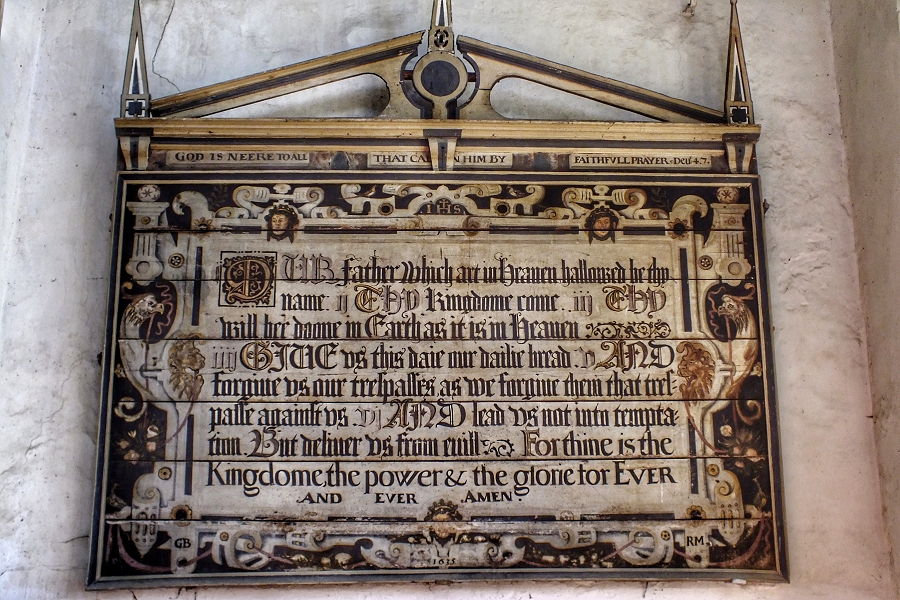 GOD IS NEERE TO ALL THAT CALL VPON HIM BY FAITHFVLL PRAYER. Deut 4.7.
IHS
OUR father which art in Heauen hallowed be thy
name. ij THY Kingdome come. iij THY
Will bee doone in Earth as it is in Heauen.
iiij GIUE vs this daie our dailie bread. v AND
forgiue vs our trespasses as we forgiue them that tres-
passe against vs. vj AND lead vs not into tempta-
tion. But deliuer vs from euill. For thine is the
Kingdome, the power & the glorie for EVER
AND EVER AMEN.
GB RM
1635